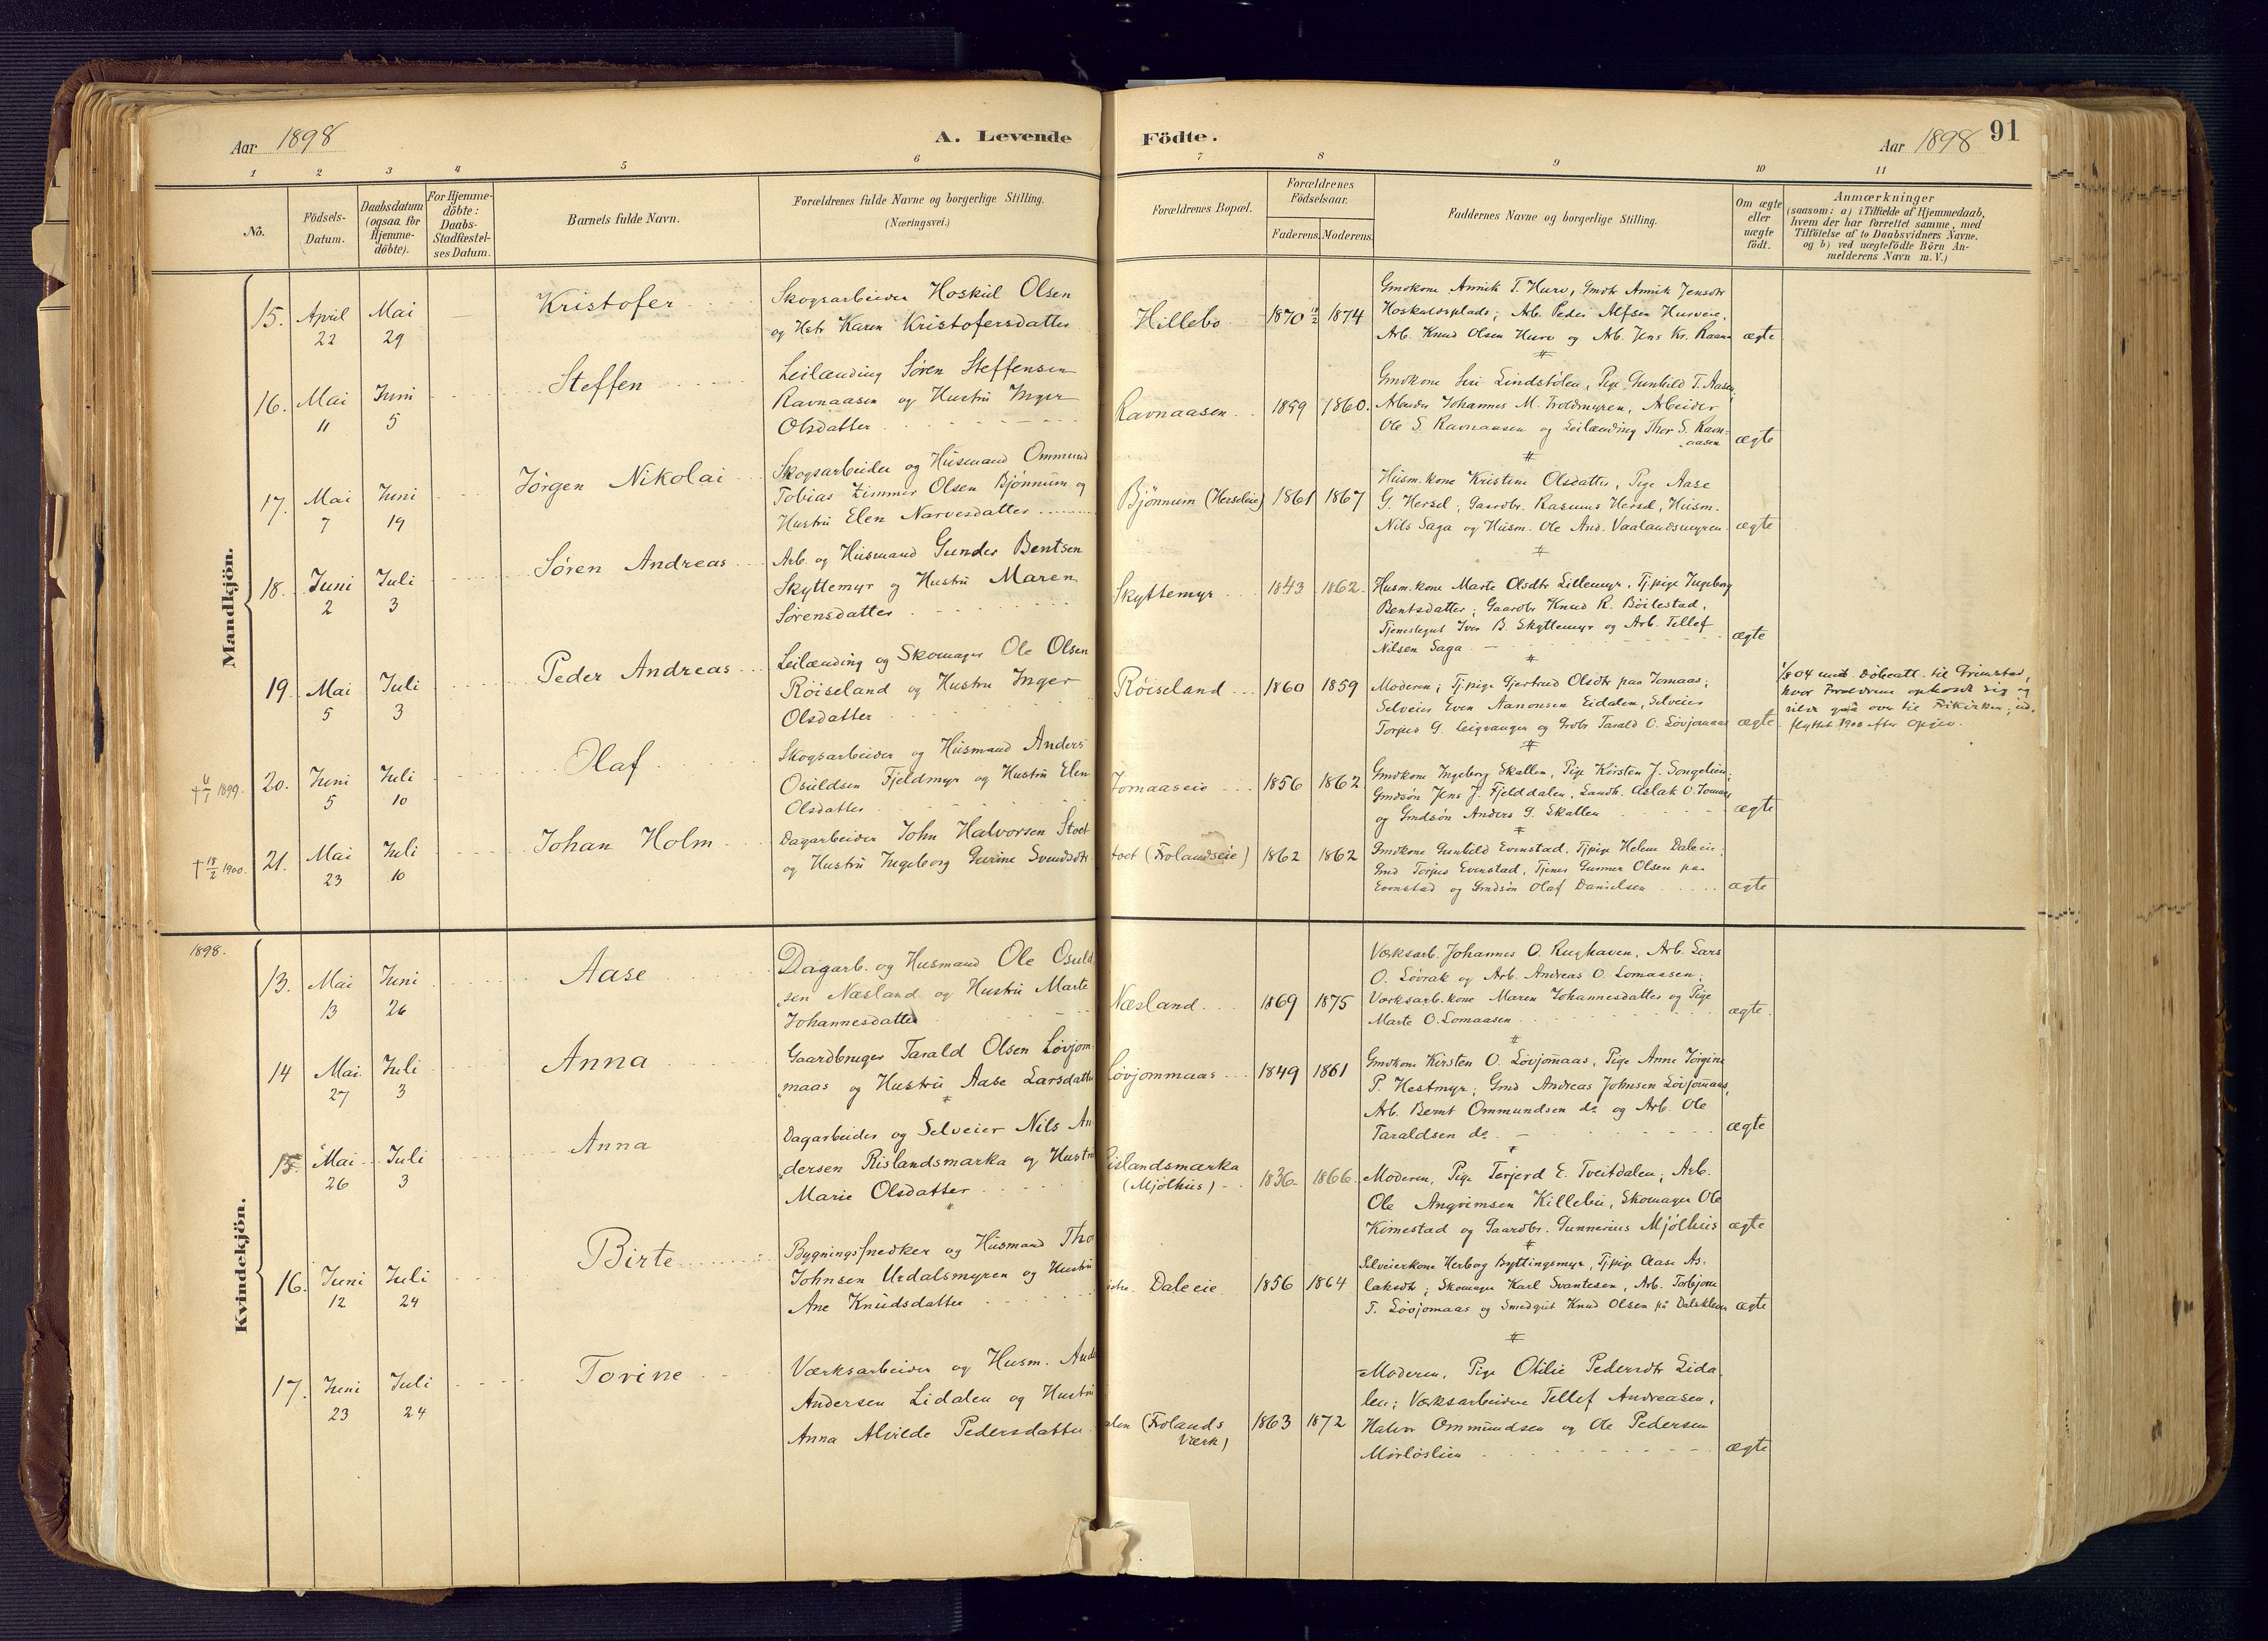 Aar 1898
A. Levende
Födte.
Aar 1898
91
1 2 3 4 5 6 7 8 9 10 11
No.
Födsels-
Datum.
Daabsdatum
(ogsaa for
Hjemme-
döbte).
For Hjemme-
döbte:
Daabs-
Stadfæstel-
ses Datum.
Barnets fulde Navn.
Forældrenes fulde Navne og borgerlige Stilling.
(Næringsvei.)
Forældrenes Bopæl.
Forældrenes
Födselsaar.
Faderens. Moderens.
Faddernes Navne og borgerlige Stilling.
Om ægte
eller
uægte
födt.
Anmærkninger
(saasom: a) i Tilfælde af Hjemmedaab,
hvem der har forrettet samme, med
Tilföielse af to Daabsvidners Navne.
og b) ved uægtefödte Börn An-
melderens Navn m. V.)
Mandkjön.
15. April 22 Mai 29 Kristofer
Skogsarbeider Hoskul Olsen
og Hstr Karen Kristofersdatter
Hillebo 1870 1874
Gmdkone Annik T. Hurv, Gmdtr Annik Jensdtr
Hoskuldsplads; Arb. Peder Alfsen Husveie,
Arb. Knud Olsen Hurv og Arb. Jens Kr. Raan
ægte
16. Mai 11 Juni 5 Steffen
Leilænding Søren Steffensen
Ravnaasen og Hustru Inger
Olsdatter
Ravnaasen 1859 1860.
Gmdkone Siri Lindstølen, Pige Gunhild T. Aasen,
Arbeider Johannes M. Troldmyren, Arbeider
Ole S. Ravnaasen og Leilænding Thor S. Ravn=
aasen ægte
17. Mai 7 Juni 19 Jørgen Nikolai
Skogsarbeider og Husmand Ommund
Tobias Zimmer Olsen Bjønnum og
Hustru Elen Narvesdatter
Bjønnum (Herseleie) 1861 1867
Husm.kone Kristine Olsdatter, Pige Aase
G. Hersel; Gaardbr. Rasmus Hersel, Husm.
Nils Saga og Husm. Ole And. Vaalandsmyren
ægte
18. Juni 2 Juli 3 Søren Andreas
Arb. og Husmand Gunder Bentsen
Skyttemyr og Hustru Maren
Sørensdatter
Skyttemyr 1843 1862.
Husm.kone Marte Olsdtr Lillemyr, Tj.pige Ingeborg
Bentsdatter; Gaardbr Knud R. Bøilestad,
Tjenestegut Iver B. Skyttemyr og Arb. Tellef
Nilsen Saga
ægte
19. Mai 5 Juli 3 Peder Andreas
Leilænding og Skomager Ole Olsen
Røiseland og Hustru Inger
Olsdatter
Røiseland 1860 1859
Moderen; Tj.pige Gjertrud Olsdtr paa Jomaas;
Selveier Even Aanonsen Eidalen, Selveier
Torjus G. Leigvanger og Grbr Tarald O. Løvjomaas
ægte
1/8 04 uds. Døbeatt. til Grimstad,
hvor Forældrene opholdt sig og
vilde gaa over til Frikirken; ud-
flyttet 1900 efter Opgiv.
† 6/1 1899.
20. Juni 5 Juli 10 Olaf
Skogsarbeider og Husmand Anders
Osuldsen Fjeldmyr og Hustru Elen
Olsdatter
Jomaaseie 1856 1862
Gmdkone Ingeborg Skallen, Pige Kirsten J. Songeleien;
Gmdsøn Jens J. Fjelddalen, Landh. Aslak O. Jomaas
og Gmdsøn Anders G. Skallen
ægte
† 18/2 1900.
21. Mai 23 Juli 10 Johan Holm
Dagarbeider John Halvorsen Stoet
og Hustru Ingeborg Gurine Svendsdtr
toet (Frolandseie) 1862 1862
Gmdkone Gunhild Evenstad, Tjpige Helene Daleeie;
Gmd Torjus Evenstad, Tjener Gunner Olsen paa
Evenstad og Gmdsøn Olaf Danielsen
ægte
1898.
Kvindekjön.
13. Mai 13 Juni 26 Aase
Dagarb. og Husmand Ole Osuld
sen Næsland og Hustru Marte
Johannesdatter
Næsland 1869 1875
Værksarb. Johannes O. Rughaven, Arb. Lars
O. Løvrak og Arb. Andreas O. Lomaasen;
Værksarb.kone Maren Johannesdatter og Pige
Marte O. Lomaasen
ægte
14 Mai 27 Juli 3 Anna
Gaardbruger Tarald Olsen Løvjom-
maas og Hustru Aase Larsdatter
Løvjommaas 1849 1861
Gmdkone Kirsten O. Løvjomaas, Pige Anne Jørgine
P. Hestmyr; Gmd Andreas Johnsen Løvjomaas,
Arb. Bernt Ommundsen do og Arb. Ole
Taraldsen do.
ægte
15. Mai 26 Juli 3 Anna
Dagarbeider og Selveier Nils An
dersen Rislandsmarka og Hustru
Marie Olsdatter
Rislandsmarka
(Mjølhus) 1836 1866
Moderen, Pige Terjerd E. Tveitdalen; Arb.
Ole Angrimsen Killebu, Skomager Ole
Kimestad og Gaardbr. Gunnerius Mjølhus
ægte
16. Juni 12 Juli 24 Birte
Bygningssnedker og Husmand Tho
Johnsen Urdalsmyren og Hustru
Ane Knudsdatter
Daleeie 1856 1864
Selveierkone Herborg Byttingsmyr, Tjpige Aase As-
laksdtr; Skomager Karl Svantesen, Arb. Torbjørn
T. Løvjomaas og Smedgut Knud Olsen på Dalskleven
ægte
17. Juni 23 Juli 24 Torine
Værksarbeider og Husm. And
Andersen Lidalen og Hustru
Anna Alvilde Pedersdatter
alen (Frolands
Værk) 1863 1872
Moderen, Pige Otilie Pedersdtr Lida-
len; Værksarbeiderne Tellef Andreasen,
Halvor Ommundsen og Ole Pedersen
Mørløslien
ægte